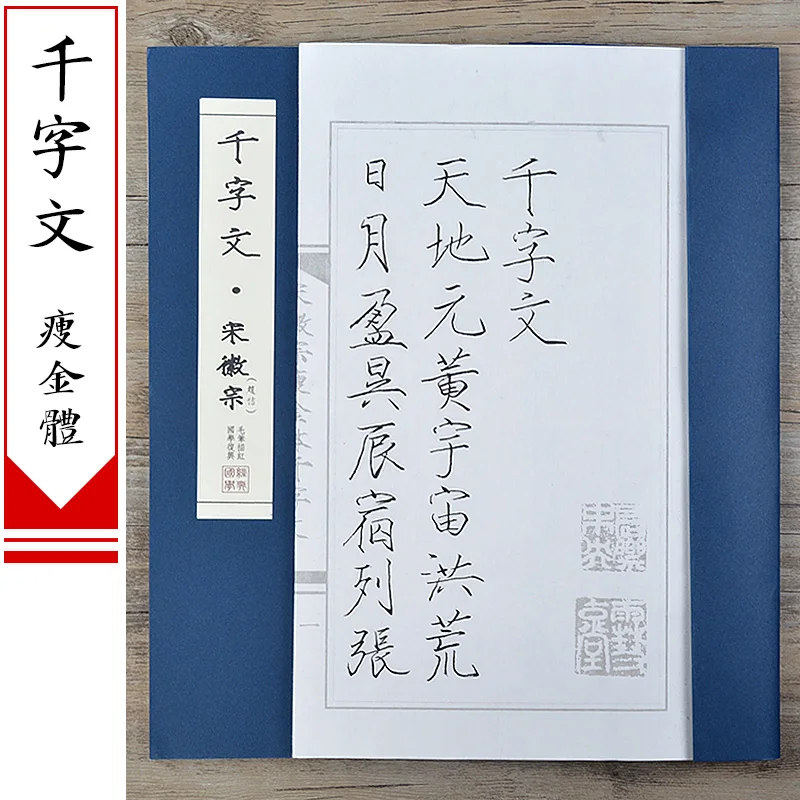 千字文
瘦金體
千字文・宋徽宗
(趙佶)
毛筆描紅
國學復興
經典
國學
千字文
天地元黃宇宙洪荒
日月盈昃辰宿列張
一